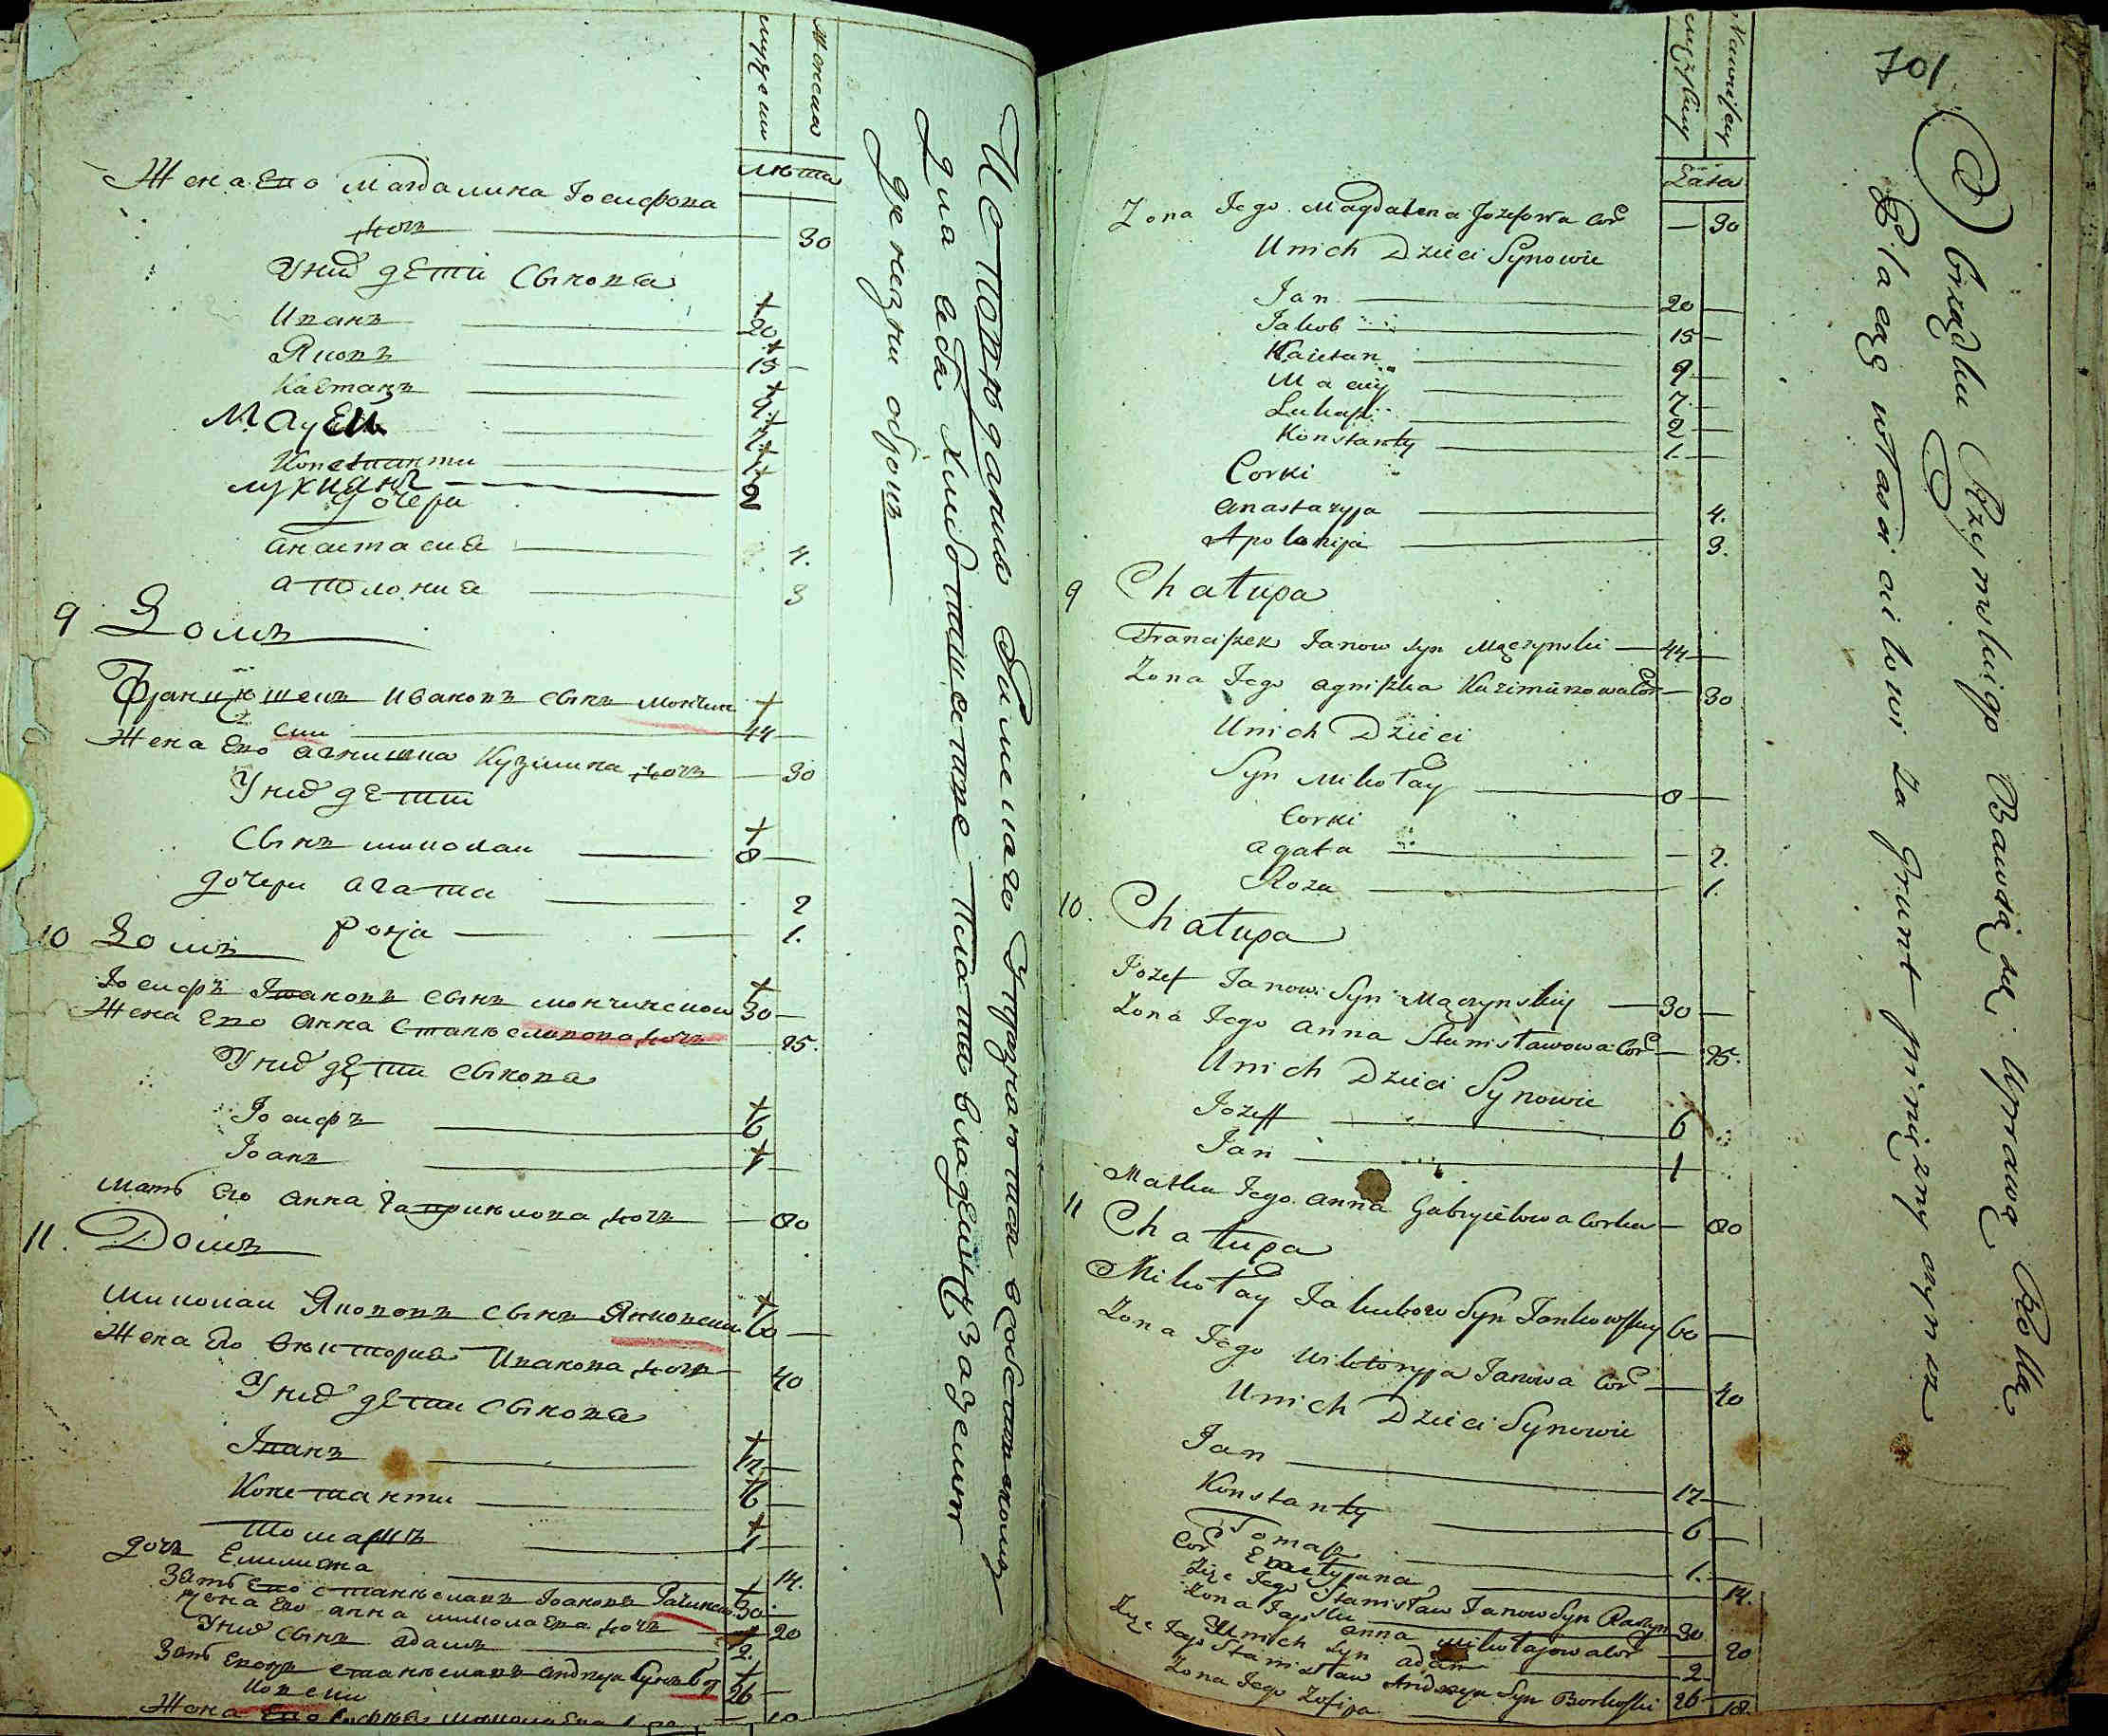 мужеска
женска
лѣта
Жена Его Магдалина Іосифова
дочь 30
У них дети Сынова
Иванъ 20
Яковъ 15
Каетанъ 9
Мацеи 7
Константи 1
Лукианъ 2
дочери
Анастасия 4.
Аполония 3
9 Домъ
Францишекъ Ивановъ сынъ Мончин
ски 44
Жена Его Агнишка Кузмина дочь 30
У них дети
Сынъ Миколаи 8
дочери Агата 2
Розя 1.
10 Домъ
Іосифъ Івановъ сынъ Мончинскои 30
Жена Его Анна Станиславова дочь 25.
У них дети Сынова
Іосифъ 6
Іоанъ 1
Мать Его Анна Гавриилова дочь 80
11. Домъ
Миколаи Яковов сынъ Янковски 60
Жена Его Виктория Иванова дочь 40
У них дети Сынова
Іванъ 12
Константи 6
Томашъ 1
дочь Емилиана 14.
Зять Его Станиславъ Іоановъ Рачински 30
Жена Его Анна Миколаева дочь 20
У них сынъ Адамъ 2.
Зять Его Станиславъ Андрея сынъ Бор
ковски 26
Жена Его София Миколаева 18
Исповѣдания Римскаго Упражняются в собственномъ
для себя хлебопашестве Платятъ владельцу за землю
денежны оброкъ
701
męzkiey
Niewieskiey
Lata
Zona Jego Magdalena Jozefowa Cor 30
Unich Dzieci Synowie
Jan 20
Jakob 15
Kaietan 9
Maciey 7
Lukasz 2
Konstanty 1
Corki
Anastazyja 4.
Apolonija 3.
9 Chałupa
Franciszek Janow Syn Mączynski 44
Zona Jego Agniszka Kazimirzowa Cor 30
Unich Dzieci
Syn Mikołay 8
Corki
Agata 2.
Roza 1.
10. Chałupa
Jozef Janow Syn Mączynskiy 30
Zona Jego Anna Stanisławowa Cor 25.
Unich Dzieci Synowie
Jozeff 6
Jan 1
Matka Jego Anna Gabryielowa Corka 80
11 Chałupa
Mikołay Jakubow Syn Jankowskiy 60
Zona Jego Wiktoryja Janowa Cor 40
Unich Dzieci Synowie
Jan 12
Konstanty 6
Tomasz 1.
Cor Emilyjana 14.
Zięc Jego Stanisław Janow Syn Raczyn
ski 30
Zona Jego Anna Mikołajowa Cor 20
Unich Syn Adam 2
Zięc Jego Stanisław Andrzeya Syn Borkoski 26
Zona Jego Zofija 18.
Obrządku Rzymskiego Bawią się Uprawą Rolli
Płacąc własciocielowi za Grunt pieniężny czynsz